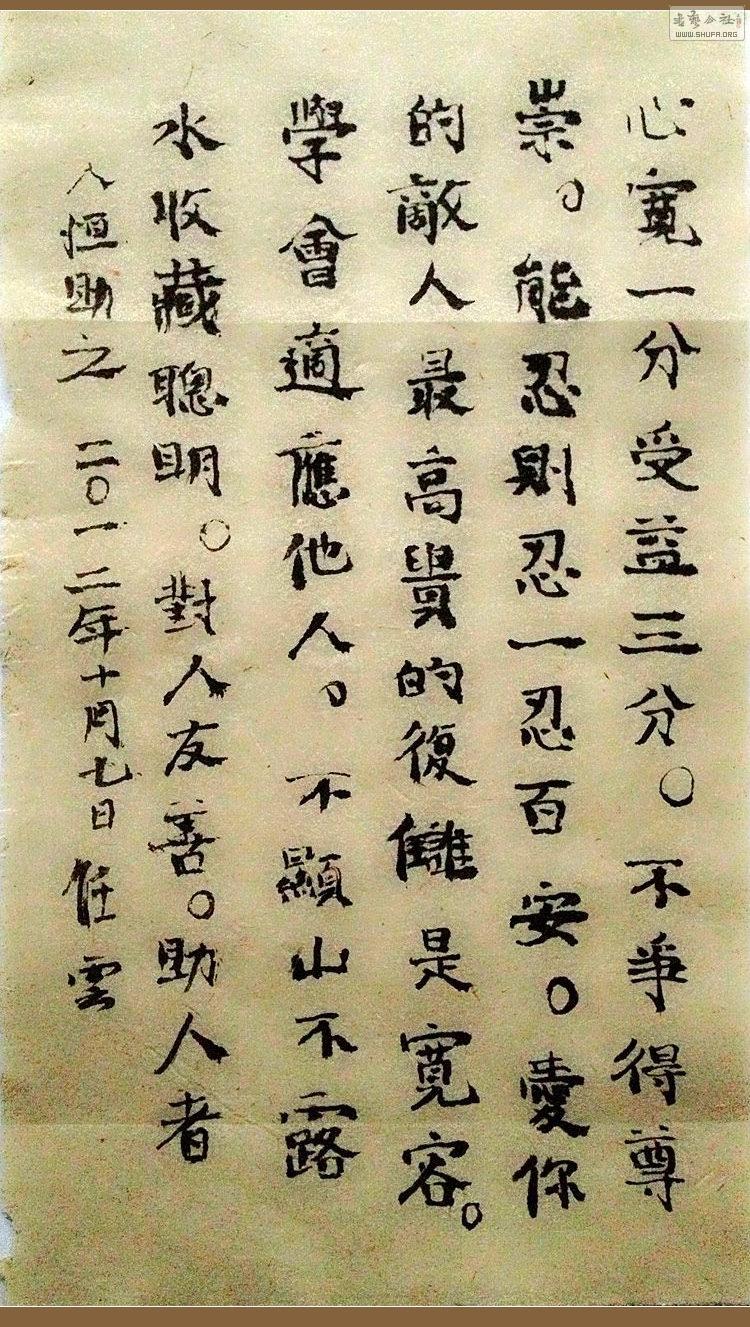 心寬一分受益三分。不爭得尊
崇。能忍則忍一忍百安。愛你
的敵人最高貴的復讎是寬容。
學會適應他人。不顯山不露
水收藏聰明。對人友善。助人者
人恒助之 二〇一二年十月七日 任雲
WWW.SHUFA.ORG